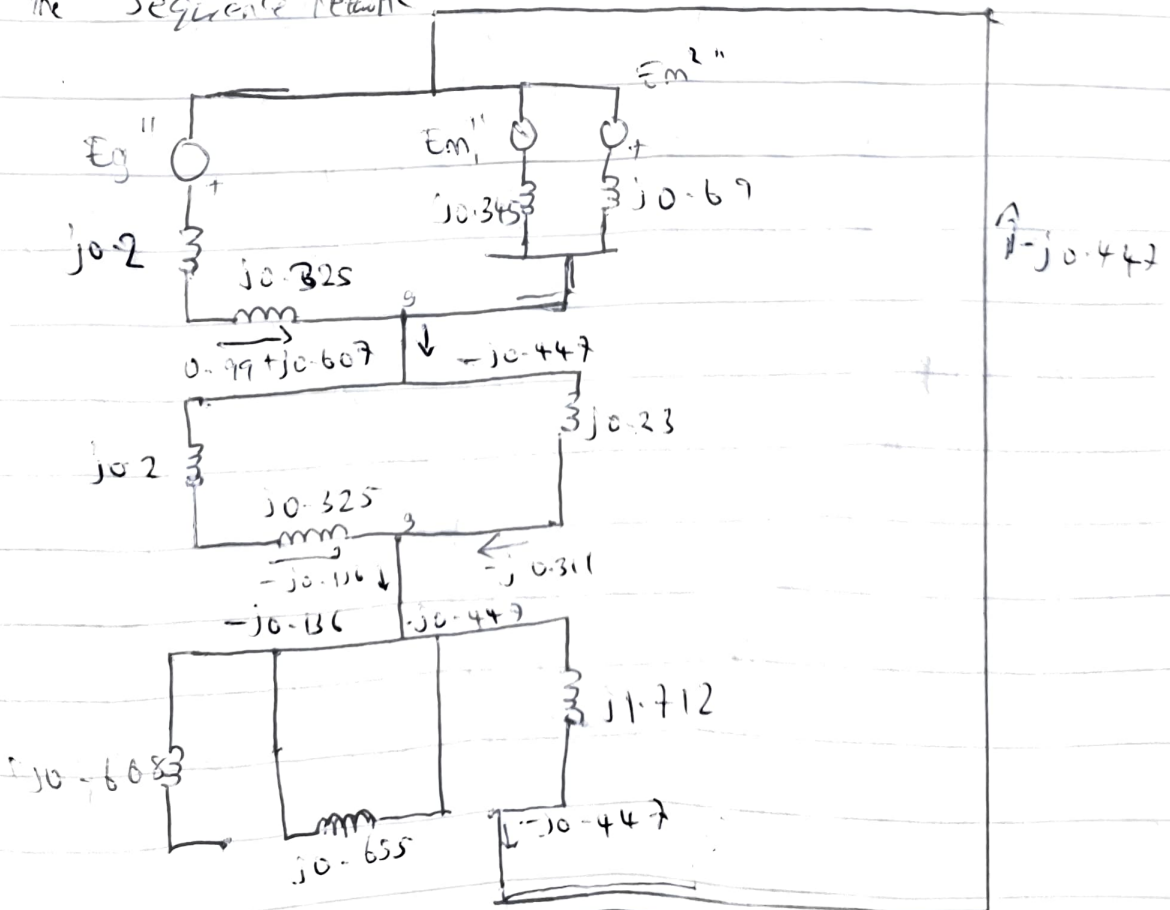 The Sequence network
Em²"
Eg"
Em₁"
+
+
j0.345
j0.69
j0.2
j0.325
j-j0.447
g
0.99+j0.607
-j0.447
j0.23
j0.2
j0.325
g
-j0.136
-j0.311
-j0.136
-j0.447
j1.712
j0.608
-j0.447
j0.655